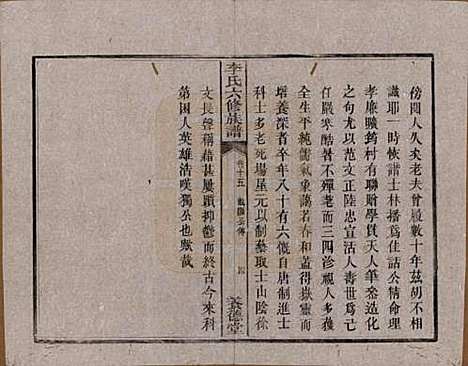 傍閱人久矣老夫曾履數十年茲胡不相
識耶一時恢譜士林播為佳話公精命理
孝廉驥銁村有聯贈學貫天人筆叅造化
之句尤以范文正陸忠宣活人壽世為己
任嚴寒酷暑不殫老而三四診視人多獲
全生平純儒氣象藹若春和葢得嶽靈而
增養深者卒年八十有六慨自唐制進士
科士多老死場屋元以制藝取士山陰徐
李氏六修族譜
卷十五
傳
四
養德堂
文長聲稱藉甚屢躓抑鬱而終古今來科
第困人英雄浩嘆獨公也歟哉